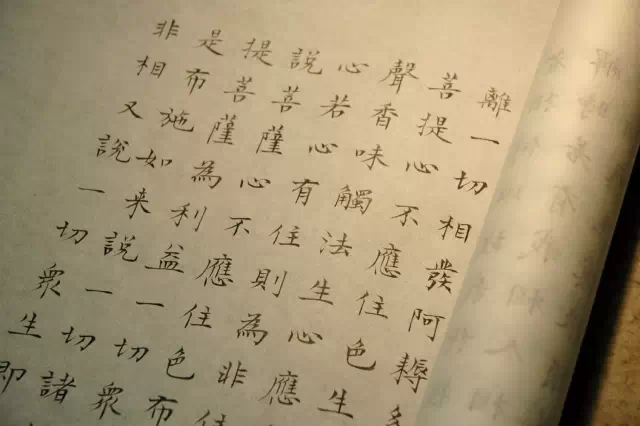 離一切相發阿耨多
菩提心不應住色生
聲香味觸法生心應
心若心有住則為非住
說菩薩心不應住色布
提菩薩為利益一切眾
是布施如来說一切諸
非相又說一切眾生即